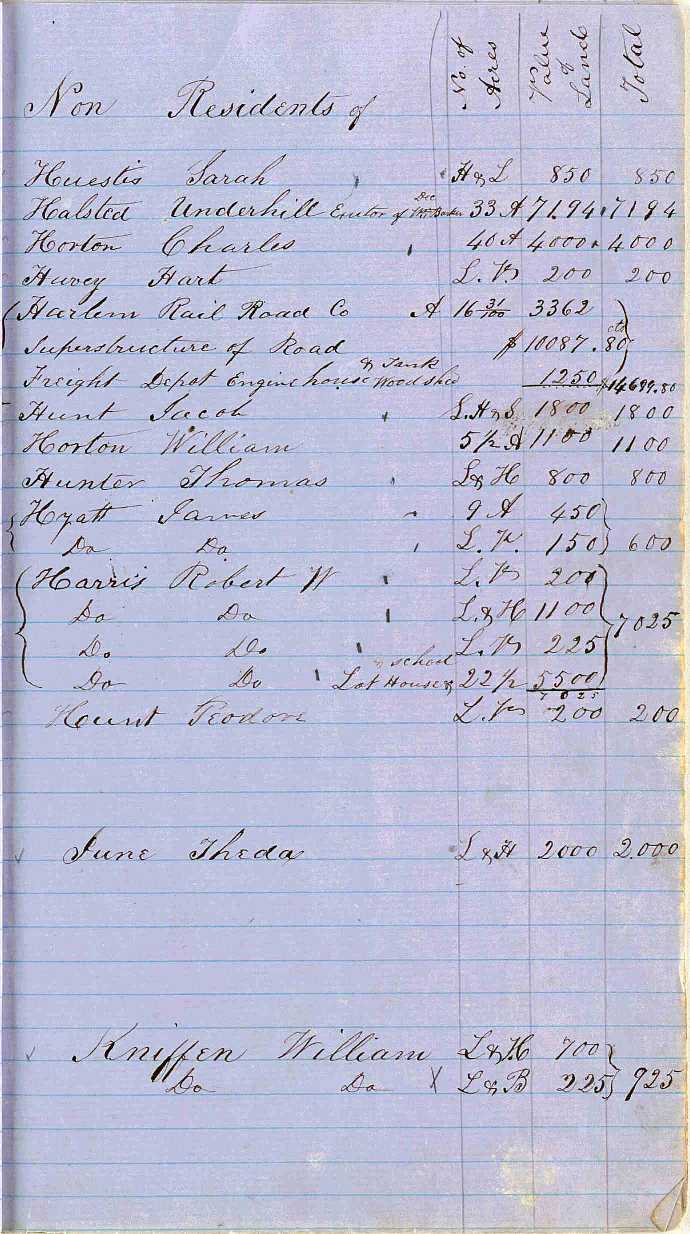 No. of Acres Value of Land Total
Non Residents of
Huestis Sarah H & L 850 850
Halsted Underhill Exutor of Dec 33 A 7194 7194
Horton Charles 40 A 4000 4000
Havey Hart L. V. 200 200
Harlem Rail Road Co A 16 31/100 3362
Superstructure of Road $ 10087.80 cts
& Tank
Freight Depot Engine house Wood shed 1250 $14699.80
Hunt Jacob L. H & S 1800 1800
Horton William 5 1/2 A 1100 1100
Hunter Thomas L & H 800 800
Hyatt James 9 A 450
Do Do L. V. 150 600
Harris Robert W L. V. 200
Do Do L. & H 1100 7025
Do Do L. V. 225
& school
Do Do Lot House & 22 1/2 5500
7025
Hunt L. V. 200 200
June Theda L & H 2000 2.000
Kniffen William L & H 700
Do Do X L & B 225 925